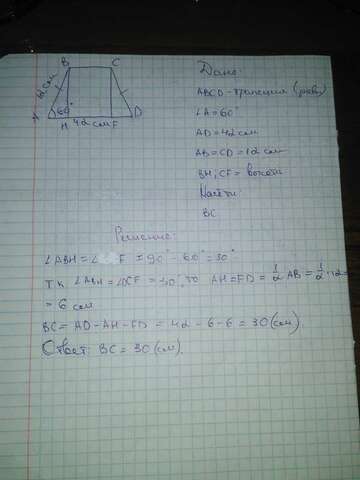 B C
12 см
60°
A H 42 см F D
Дано:
ABCD - трапеция (равн)
∠A = 60°
AD = 42 см
AB = CD = 12 см
BH, CF = высоты
Найти:
BC
Решение:
∠ABH = ∠ F = 90° - 60° = 30°
т.к ∠ABH = ∠DCF = 30°, то AH = FD = 1/2 AB = 1/2 · 12 =
= 6 см
BC = AD - AH - FD = 42 - 6 - 6 = 30 (см).
Ответ: BC = 30 (см).